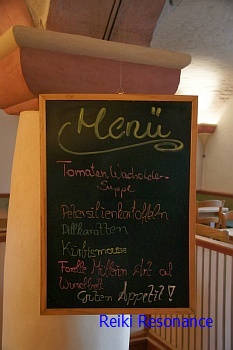 Menü
Tomaten Wacholder-
Suppe
Petersilienkartoffeln
Dillkarotten
Kürbismousse
Forelle Müllerin Art od
Wunschgeri
Guten Appetit!
Reiki Resonance